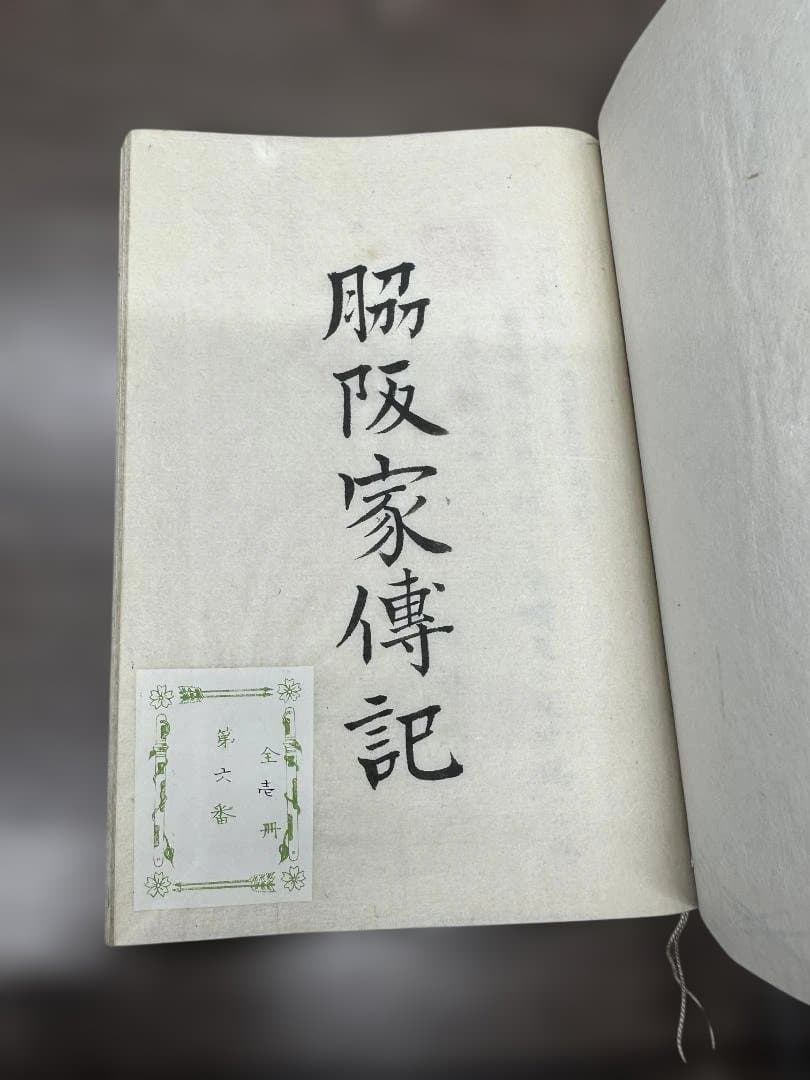 脇阪家傳記
全壱冊
第六番